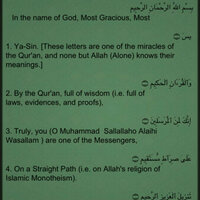 بِسْمِ اللَّهِ الرَّحْمَٰنِ الرَّحِيمِ
In the name of God, Most Gracious, Most
يس
1. Ya-Sin. [These letters are one of the miracles
of the Qur'an, and none but Allah (Alone) knows their
meanings.]
وَالْقُرْآنِ الْحَكِيمِ
2. By the Qur'an, full of wisdom (i.e. full of
laws, evidences, and proofs).
إِنَّكَ لَمِنَ الْمُرْسَلِينَ
3. Truly, you (O Muhammad Sallallaho Alaihi
Wasallam ) are one of the Messengers,
عَلَىٰ صِرَاطٍ مُّسْتَقِيمٍ
4. On a Straight Path (i.e. on Allah's religion of
Islamic Monotheism).
تَنزِيلَ الْعَزِيزِ الرَّحِيمِ